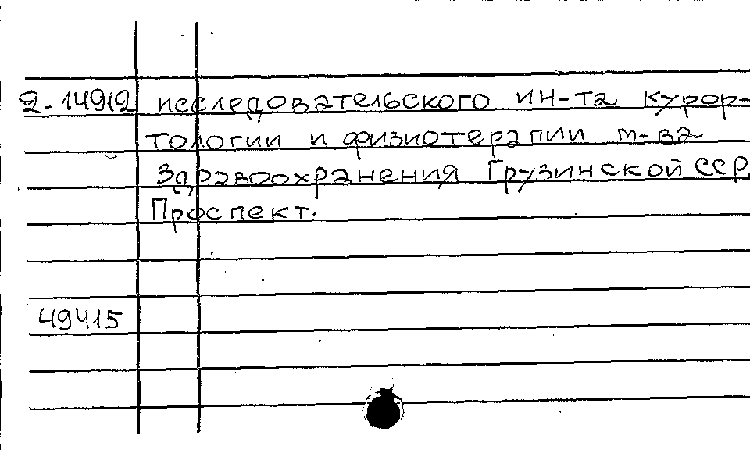 2-14912 исследовательского ин-та курор-
тологии и физиотерапии м-ва
Здравоохранения Грузинской ССР.
Проспект.
49415